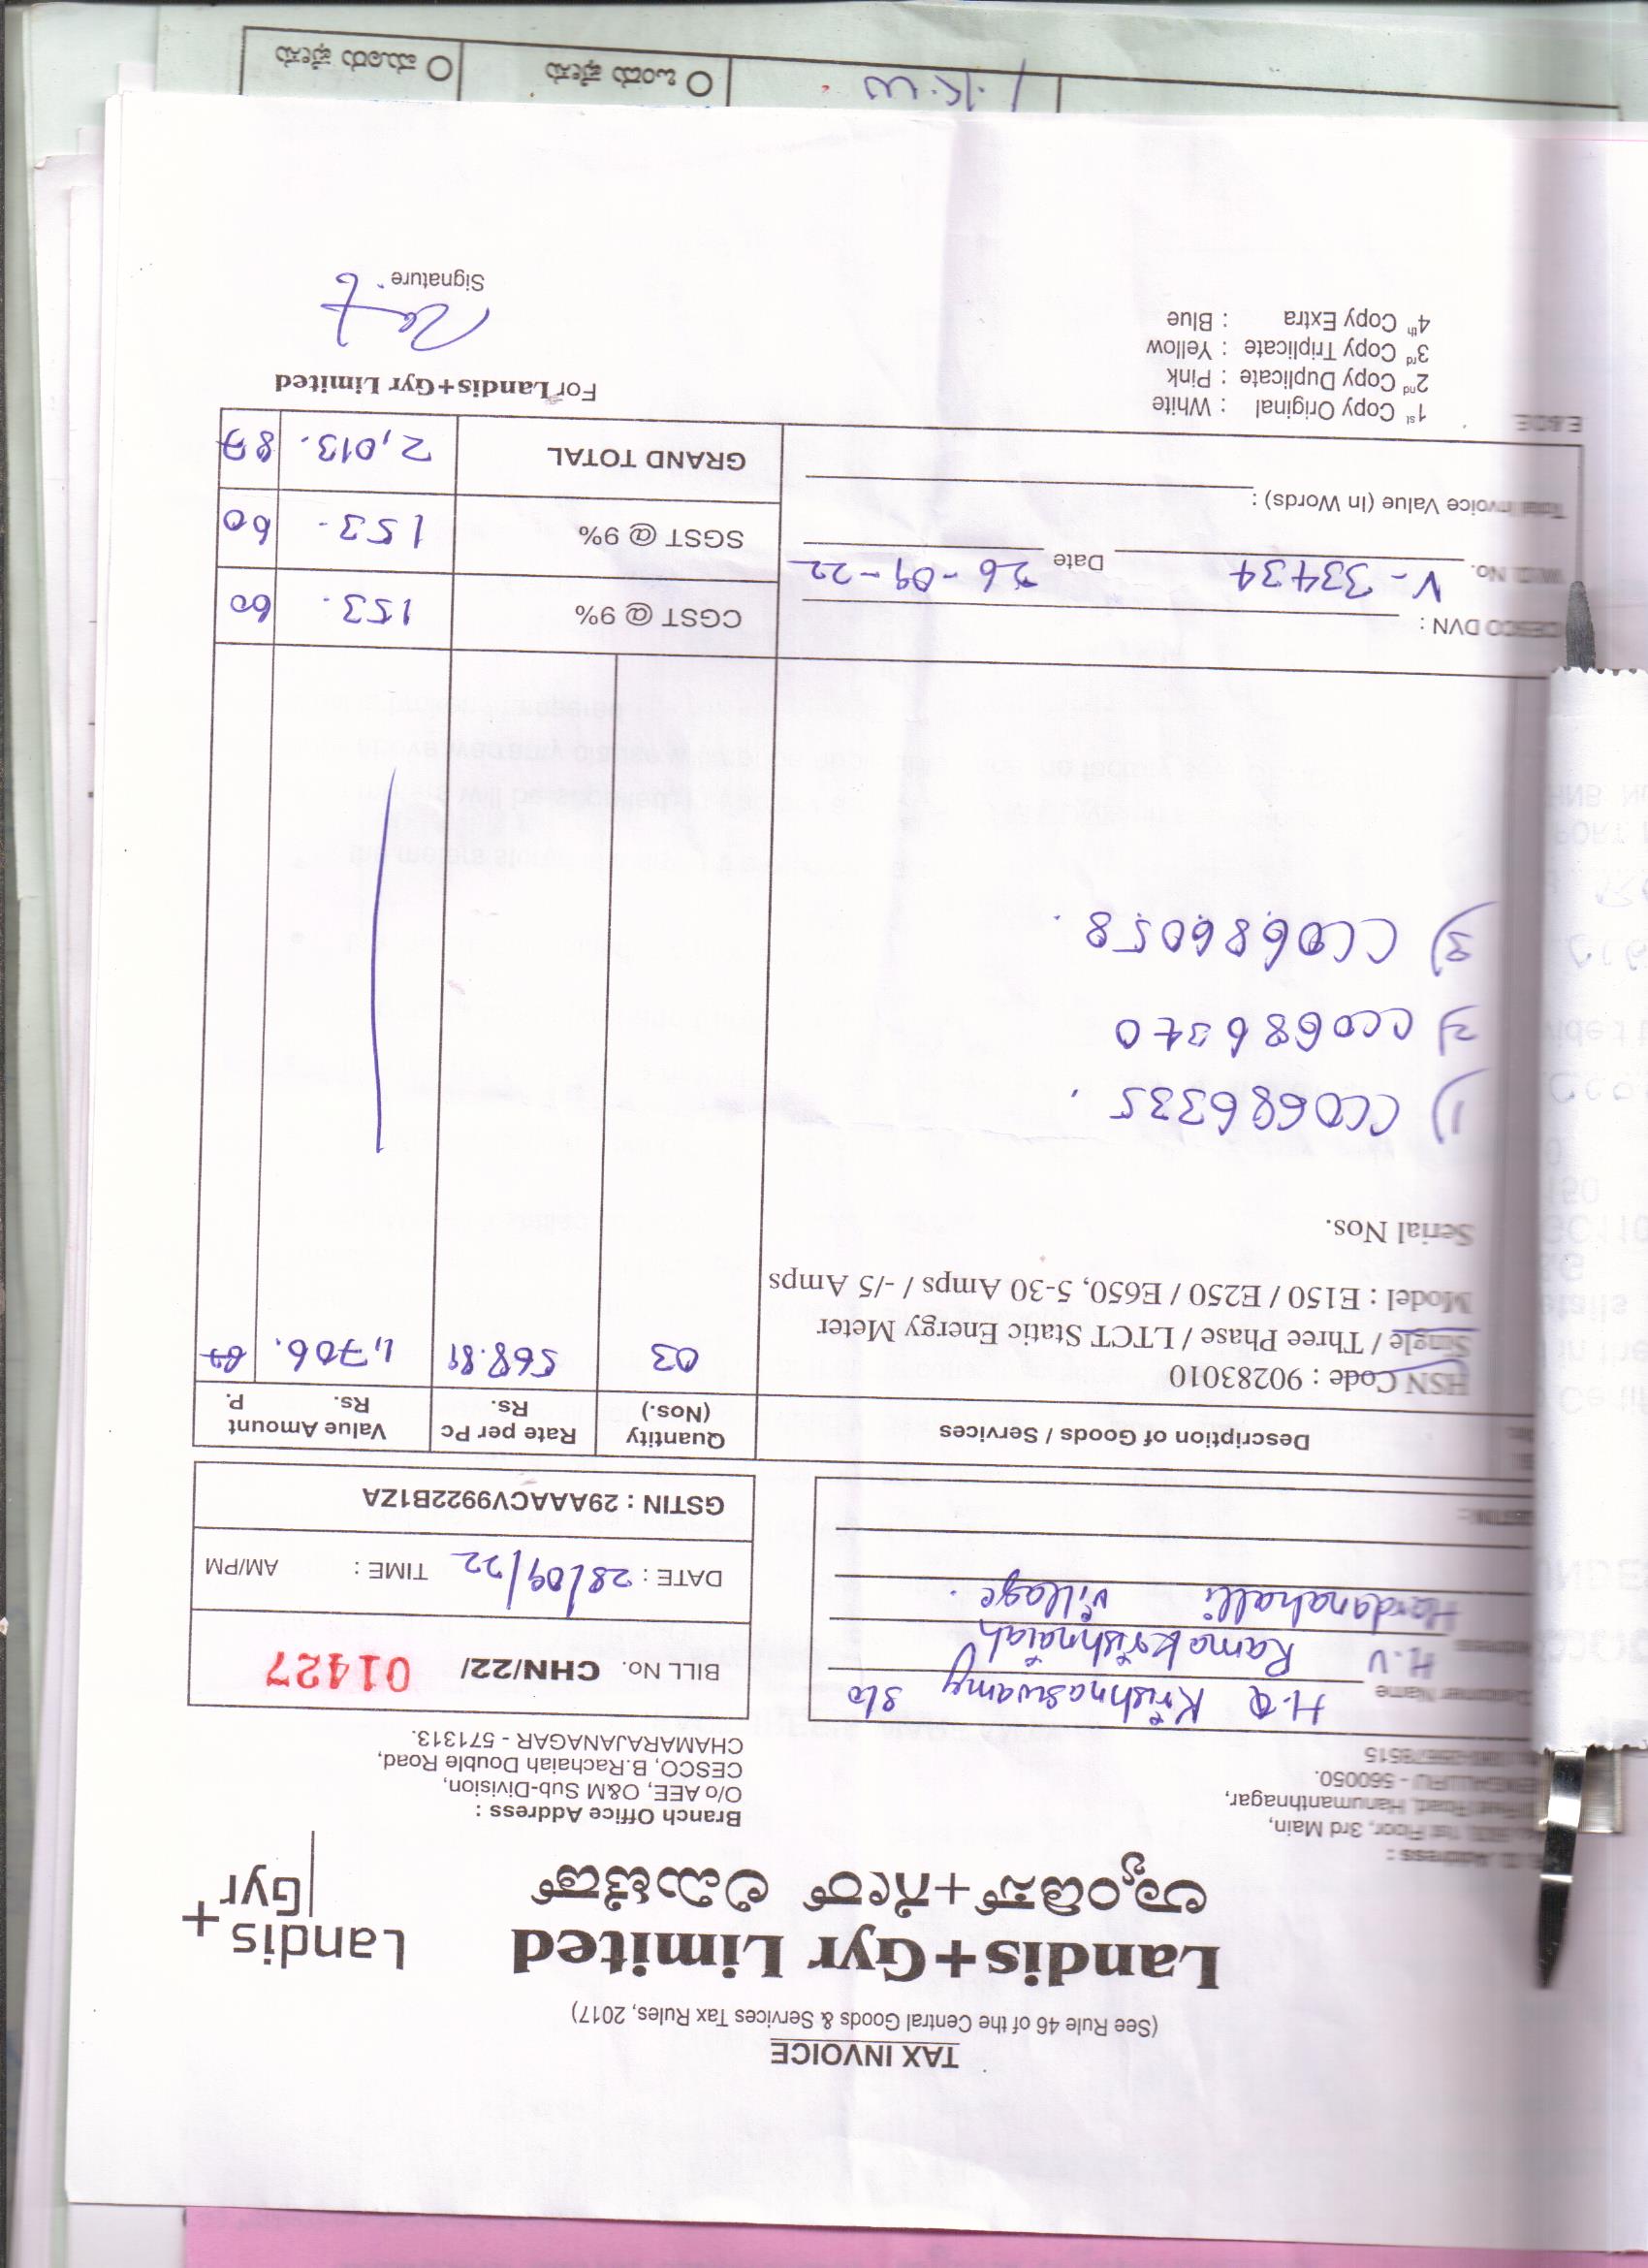 TAX INVOICE
(See Rule 46 of the Central Goods & Services Tax Rules, 2017)
Landis+Gyr Limited
ಲ್ಯಾಂಡಿಸ್+ಗೀರ್ ಲಿಮಿಟೆಡ್
Landis+
Gyr
1st Floor, 3rd Main,
Road, Hanumanthnagar,
- 560050.
Branch Office Address :
O/o AEE, O&M Sub-Division,
CESCO, B.Rachaiah Double Road,
CHAMARAJANAGAR - 571313.
Customer Name H.R Krishnaswamy S/o
Address H.V Ramakrishnaiah
Hardanahalli Village.
BILL No. CHN/22/ 01427
DATE : 28/09/22 TIME : AM/PM
GSTIN : 29AAACV9922B1ZA
Description of Goods / Services
Quantity (Nos.)
Rate per Pc Rs.
Value Amount Rs. P.
HSN Code : 90283010 03 568.89 1,706. 67
Single / Three Phase / LTCT Static Energy Meter
Model : E150 / E250 / E650, 5-30 Amps / -/5 Amps
Serial Nos.
1) CC0686335.
2) CC0686340
3) CC0686058.
CESCO DVN :
No. V-33434 Date 26-09-22
Total Invoice Value (In Words) :
CGST @ 9% 153. 60
SGST @ 9% 153. 60
GRAND TOTAL 2,013. 87
E&OE
1st Copy Original : White
2nd Copy Duplicate : Pink
3rd Copy Triplicate : Yellow
4th Copy Extra : Blue
For Landis+Gyr Limited
Signature
ಒಂದು ಫೇಸು
ಮೂರು ಫೇಸು